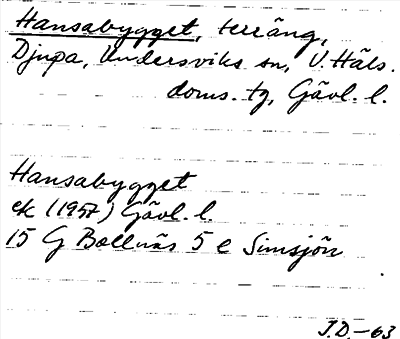 Hansabygget, terräng,
Djupa, Undersviks sn, V. Häls.
doms. tg, Gävl. l.
Hansabygget
ek (1957) Gävl. l.
15 G Bollnäs 5 e Simsjön
J.D.-63